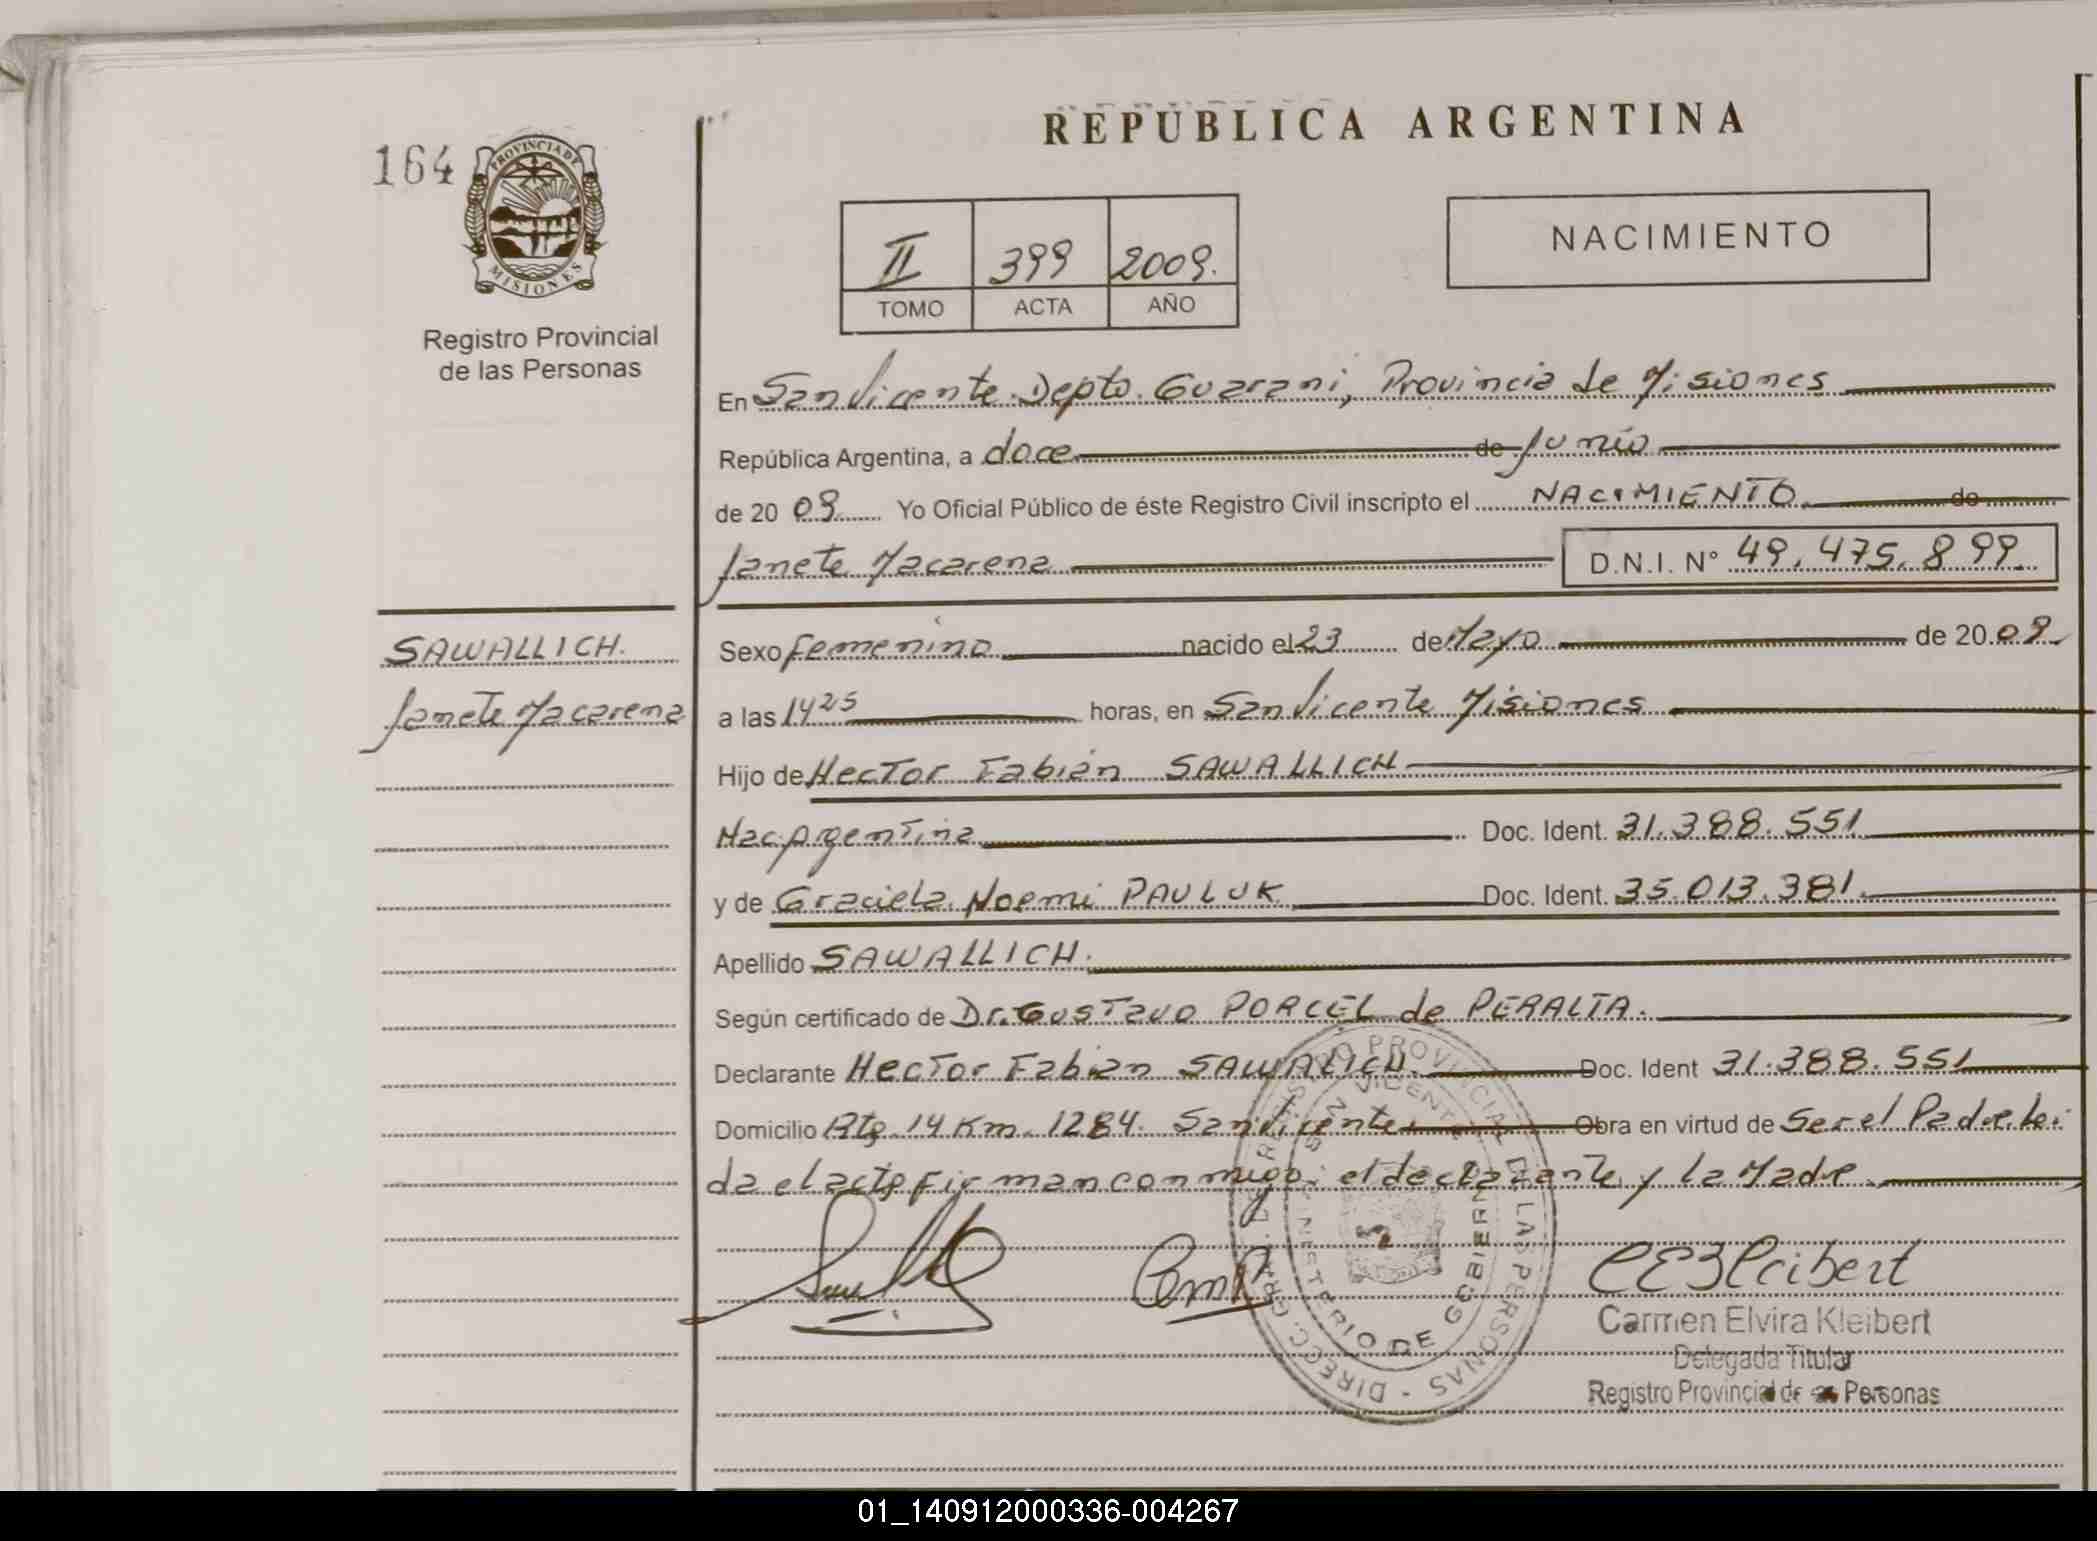 REPÚBLICA ARGENTINA
164
PROVINCIA DE
MISIONES
Registro Provincial
de las Personas
II 399 2009.
TOMO ACTA AÑO
NACIMIENTO
En San Vicente Depto. Guarani, Provincia de Misiones
República Argentina, a doce de Junio
de 20 09 Yo Oficial Público de éste Registro Civil inscripto el NACIMIENTO de
Janete Macarena D.N.I. N° 49.475.899.
SAWALLICH.
Janete Macarena
Sexo Femenino nacido el 23 de Mayo de 20 09
a las 14 25 horas, en San Vicente Misiones
Hijo de Hector Fabián SAWALLICH
Nac. Argentina Doc. Ident. 31.388.551
y de Graciela Noemi PAULUK Doc. Ident. 35.013.381.
Apellido SAWALLICH.
Según certificado de Dr. Gustavo PORCEL de PERALTA.
Declarante Hector Fabián SAWALLICH. Doc. Ident 31.388.551
Domicilio Rta. 14 Km. 1284. San Vicente Obra en virtud de Ser el Padre Lei
da el acta firman conmigo: el declarante y la Madre
DIRECC. GRAL. DEL REGISTRO PROVINCIAL DE LAS PERSONAS -
SAN VICENTE
MINISTERIO DE GOBIERNO
CEKleibert
Carmen Elvira Kleibert
Delegada Titular
Registro Provincial de las Personas
01_140912000336-004267